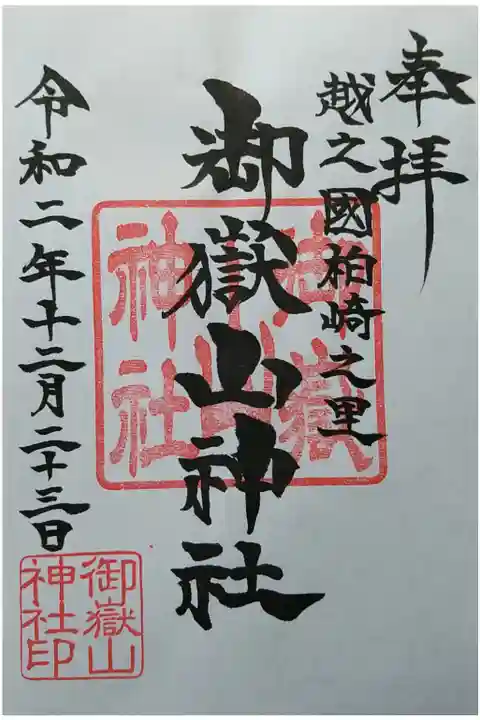 奉拝
越之國柏崎之里
御嶽山神社
令和二年十二月二十三日
御嶽山神社
御嶽山
神社印